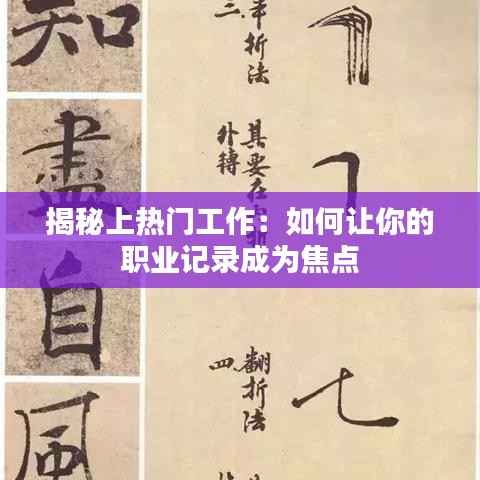 知
盡
自
風
三、半折法
其要在
外轉
揭秘上热门工作：如何让你的
职业记录成为焦点
四、翻折法
七